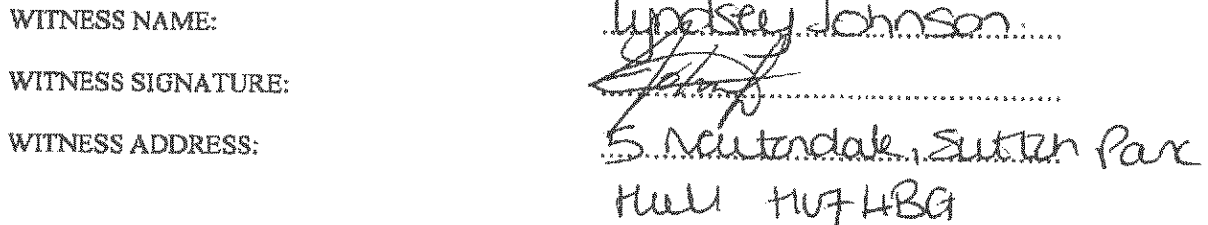 WITNESS NAME: Lyndsey Johnson.
WITNESS SIGNATURE:
WITNESS ADDRESS: 5 Newtondale, Sutton Park
Hull HU7 4BG